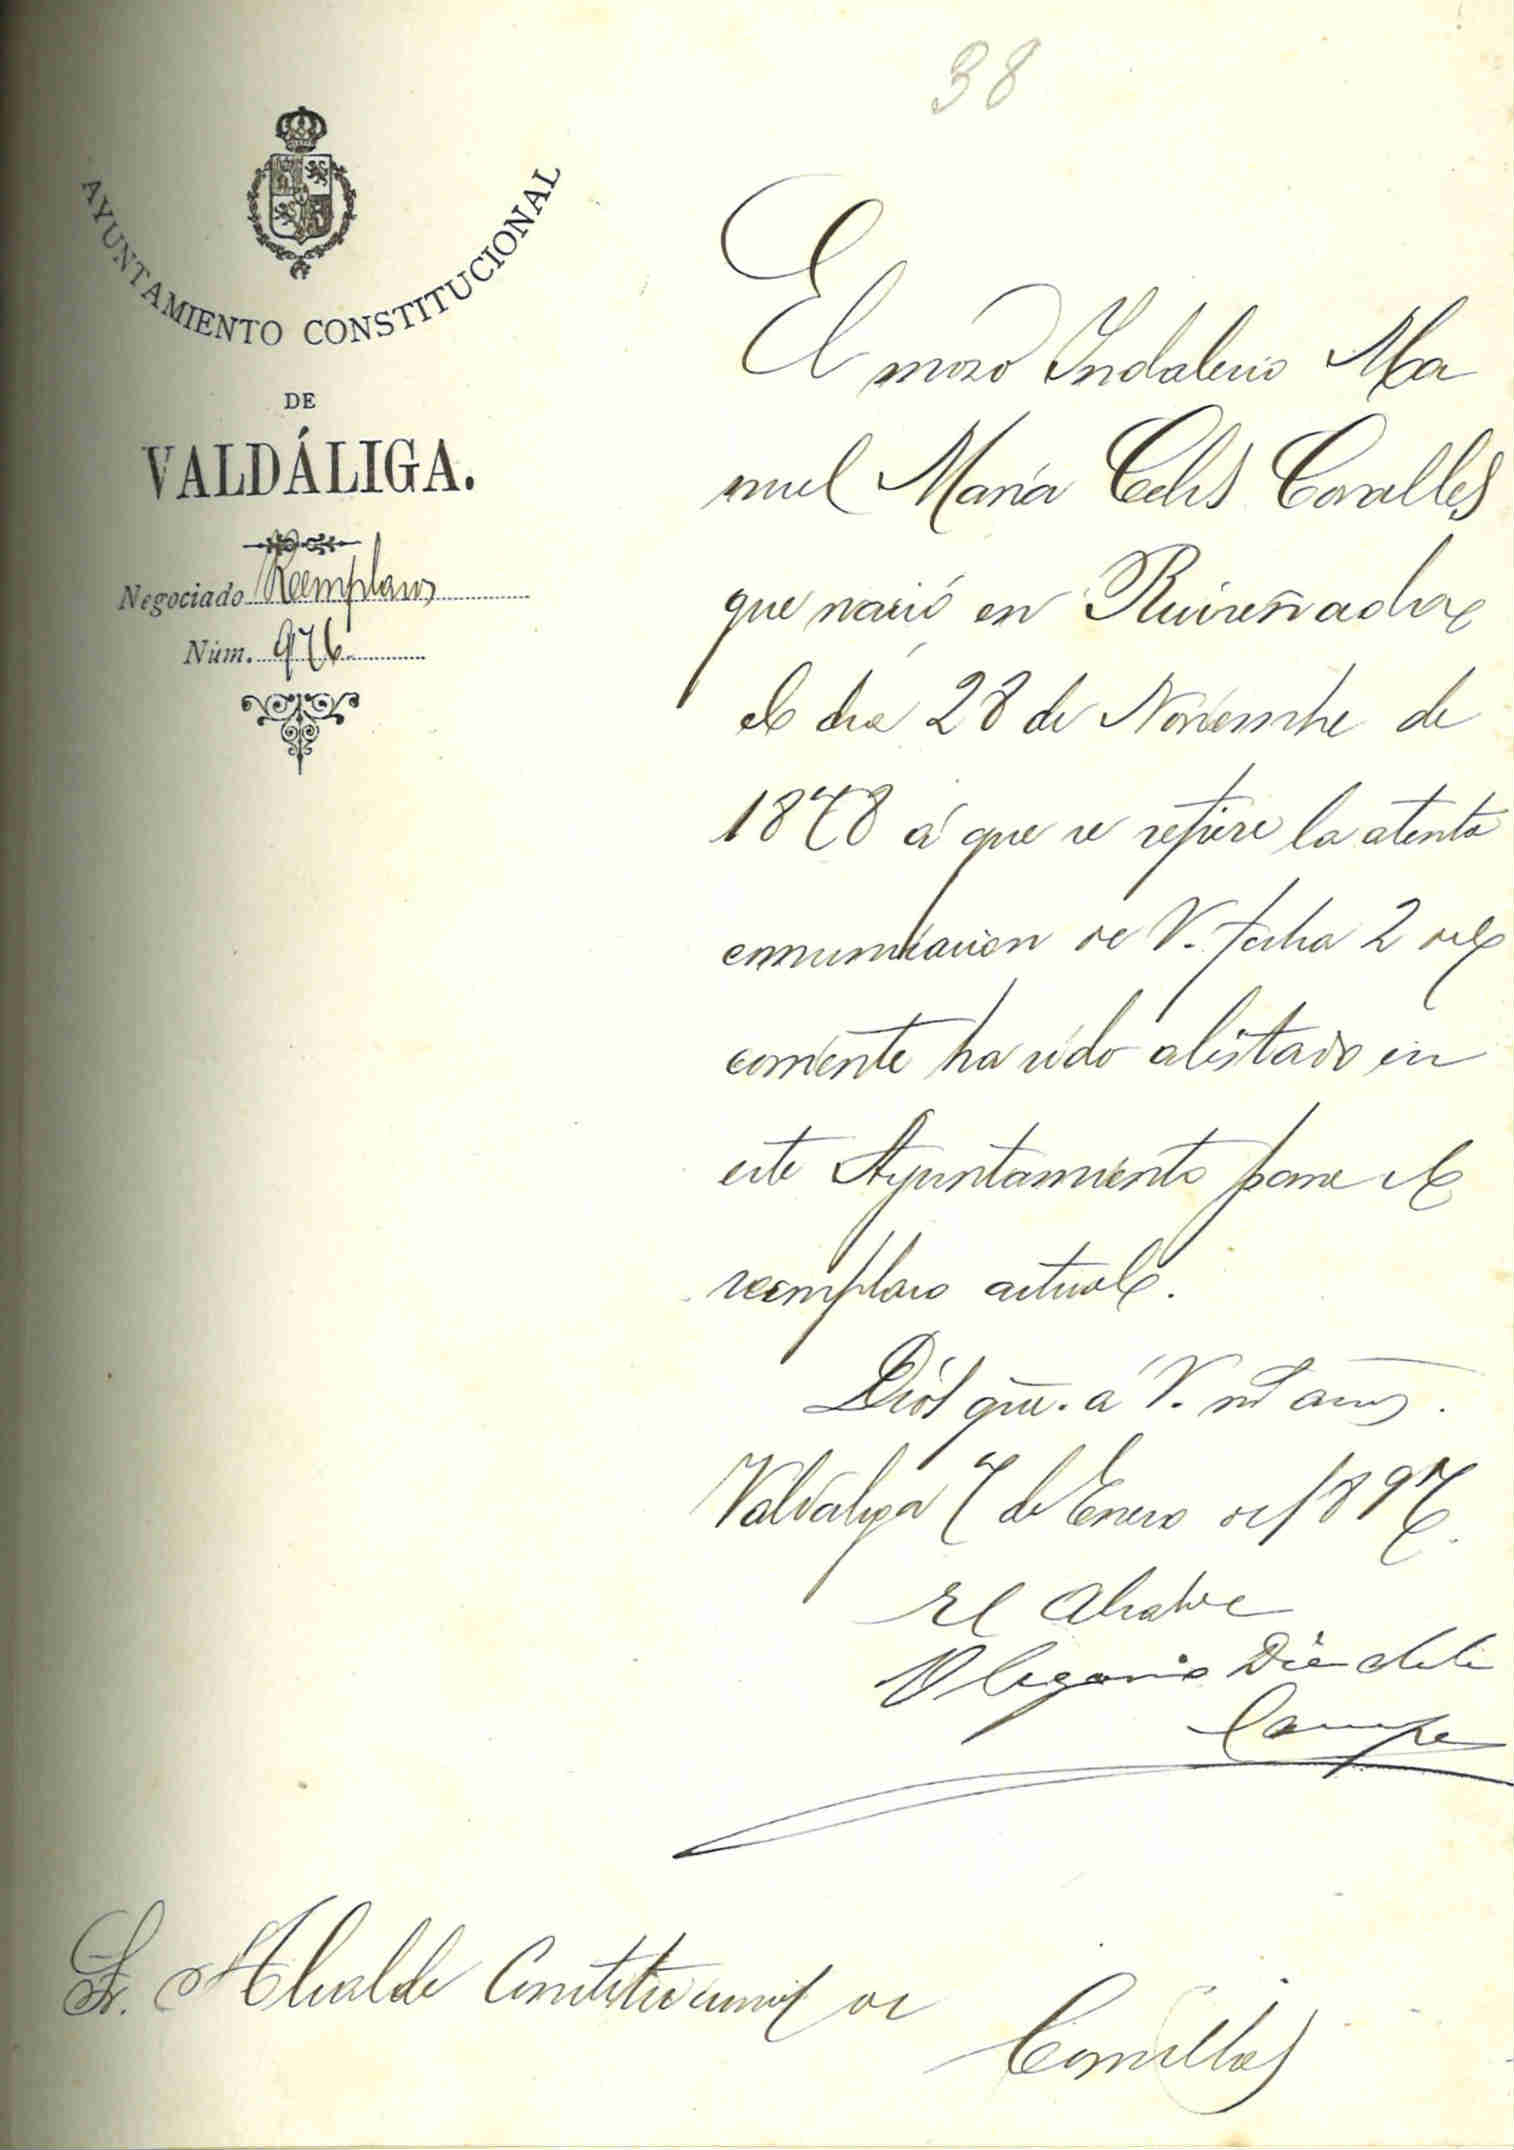 38
AYUNTAMIENTO CONSTITUCIONAL
DE
VALDÁLIGA.
Negociado Reemplazos
Núm. 976
El mozo Indalecio Ma
nuel María Celis Canalles
que nació en Ruiseñada
el dia 28 de Noviembre de
1878 á que se refiere la atenta
comunicacion de V. fecha 2 del
corriente ha sido alistado en
este Ayuntamiento para el
reemplazo actual.
Diós gue. á V. ms. años.
Valdaliga 7 de Enero de 1897.
El Alcalde
Olegario Diaz de la
Campa
Sr. Alcalde Constitucional de
Comillas